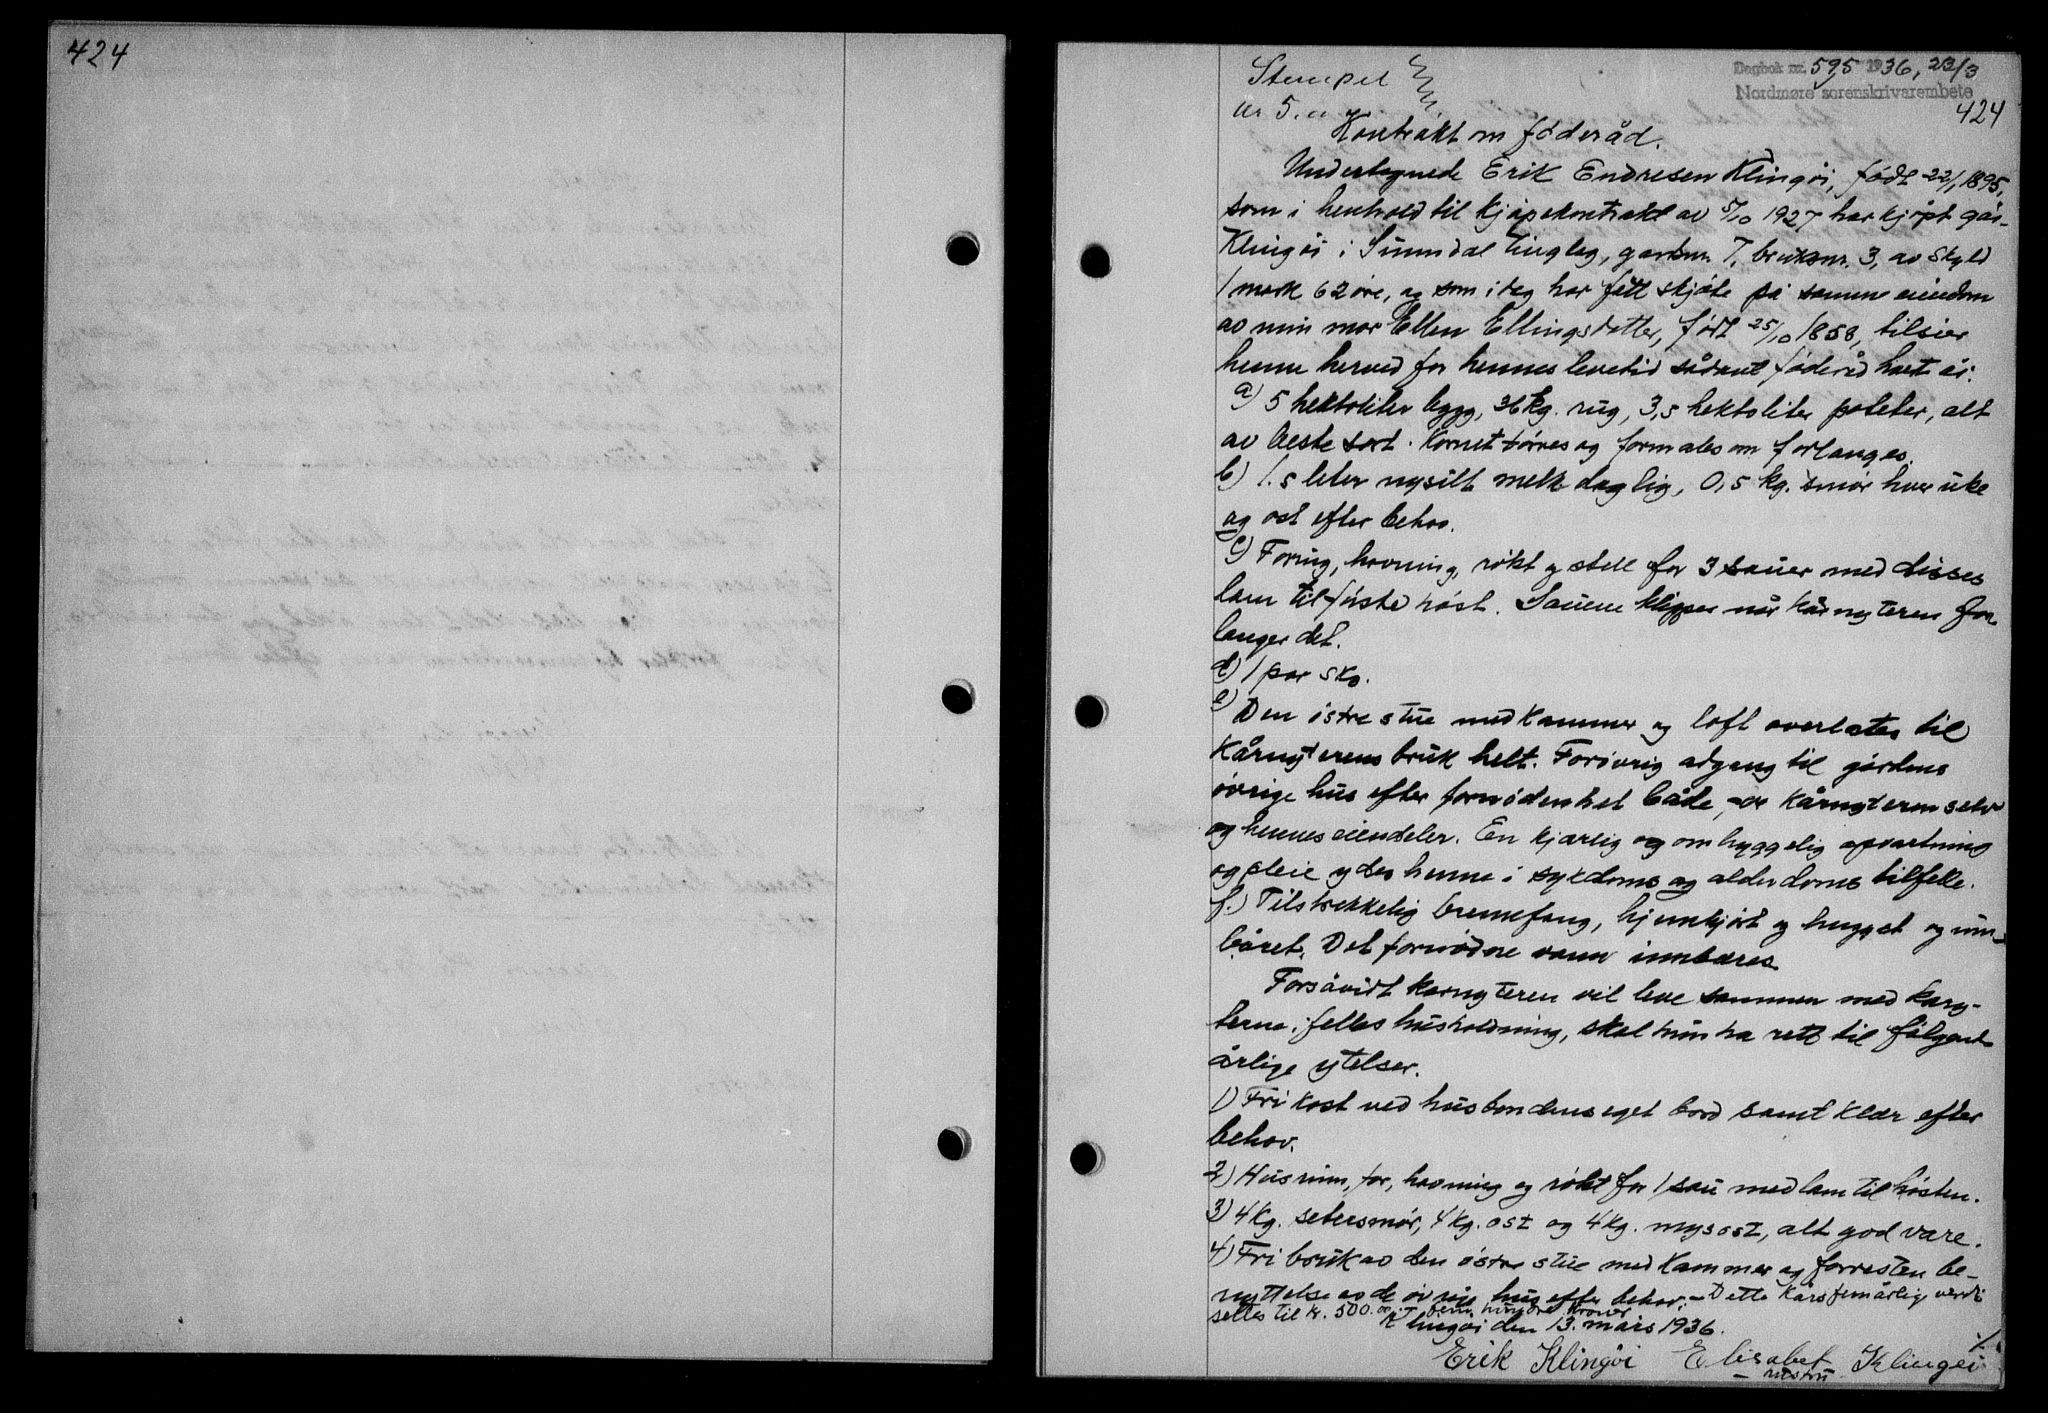 424
Dagbok nr. 595 1936, 23/3
Nordmøre sorenskrivarembete
424
Stempel
kr 5.00
Kontrakt om föderåd.
Undertegnede Erik Endresen Klingöi, födt 22/1 1895,
som i henhold til kjöpekontrakt av 5/10 1927 har kjöpt går-
Klingöi i Sunndal tinglag, gardsnr. 7, bruksnr. 3, av skyld
1 mark 62 öre, og som idag har fått skjöte på samme eiendom
av min mor Ellen Ellingsdatter, födt 25/10 1858, tilsier
henne herved for hennes levetid sådant föderåd hvert år:
a) 5 hektoliter bygg, 36 kg. rug, 3,5 hektoliter poteter, alt
av beste sort. Kornet törres og formales om forlanges.
b) 1.5 liter nysilt melk daglig, 0,5 kg. smör hver uke
og ost efter behov.
c) Foring, havning, rökt og stell for 3 sauer med disses
lam til förste höst. Sauene klippes når kårnyteren for-
langer det.
d) 1 par sko.
e) Den östre stue med kammer og loft overlates til
Kårnyterens bruk helt. Forövrig adgang til gårdens
övrige hus efter fornödenhet både for kårnyteren selv
og hennes eiendeler. En kjærlig og omhyggelig opvartning
og pleie ydes henne i sykdoms og alderdoms tilfelle.
f.) Tilstrekkelig brennefang, hjemkjört og hugget og inn-
båret. Det fornödne vann innbæres
Forsåvidt kårnyteren vil leve sammen med kåry-
terne i felles husholdning, skal hun ha rett til fölgende
årlige ytelser.
1) Fri kost ved husbondens eget bord samt klær efter
behov.
2) Husrum, for, havning og rökt for 1 sau med lam til hösten.
3) 4 kg. setersmör, 4 kg. ost og 4 kg. mysost, alt god vare.
4) Fri bruk av den östre stue med kammer og forresten be-
nyttelse av de övrige hus efter behov. - Dette kårs femårlig verdi
settes til kr. 500.00 fem hundre kroner
Klingöi den 13. mars 1936.
Erik Klingöi Elisabet Klingöi
- hustru